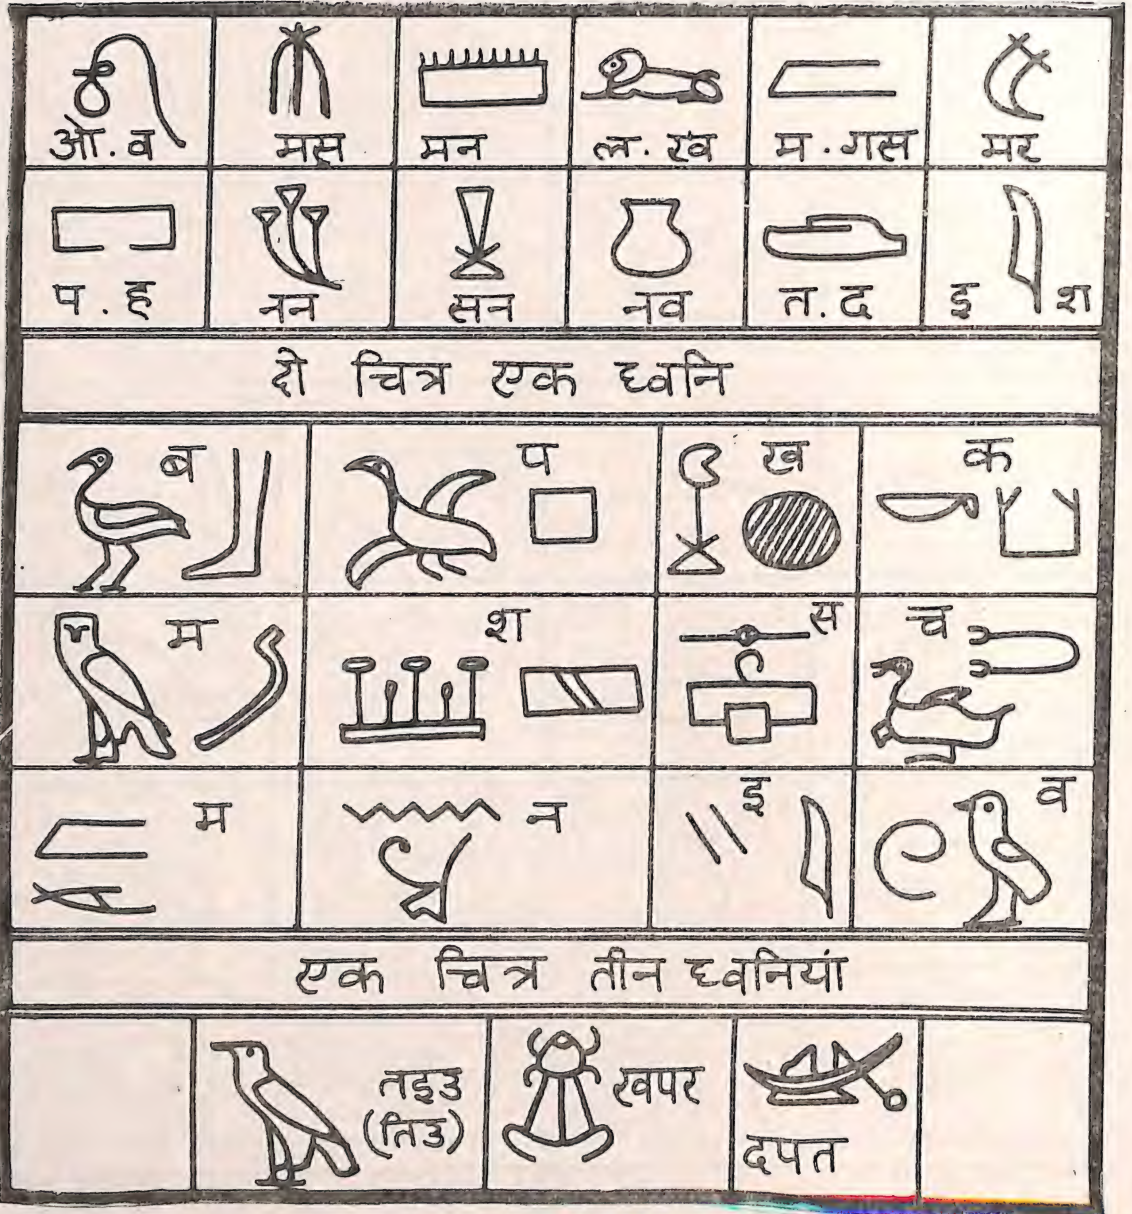 ओ.व मस मन ल.ख म.गस मर
प.ह नन सन नव त.द इ श
दो चित्र एक ध्वनि
ब प ख क
म श स च
म न इ व
एक चित्र तीन ध्वनियां
तइउ खपर
(तिउ)
दपत